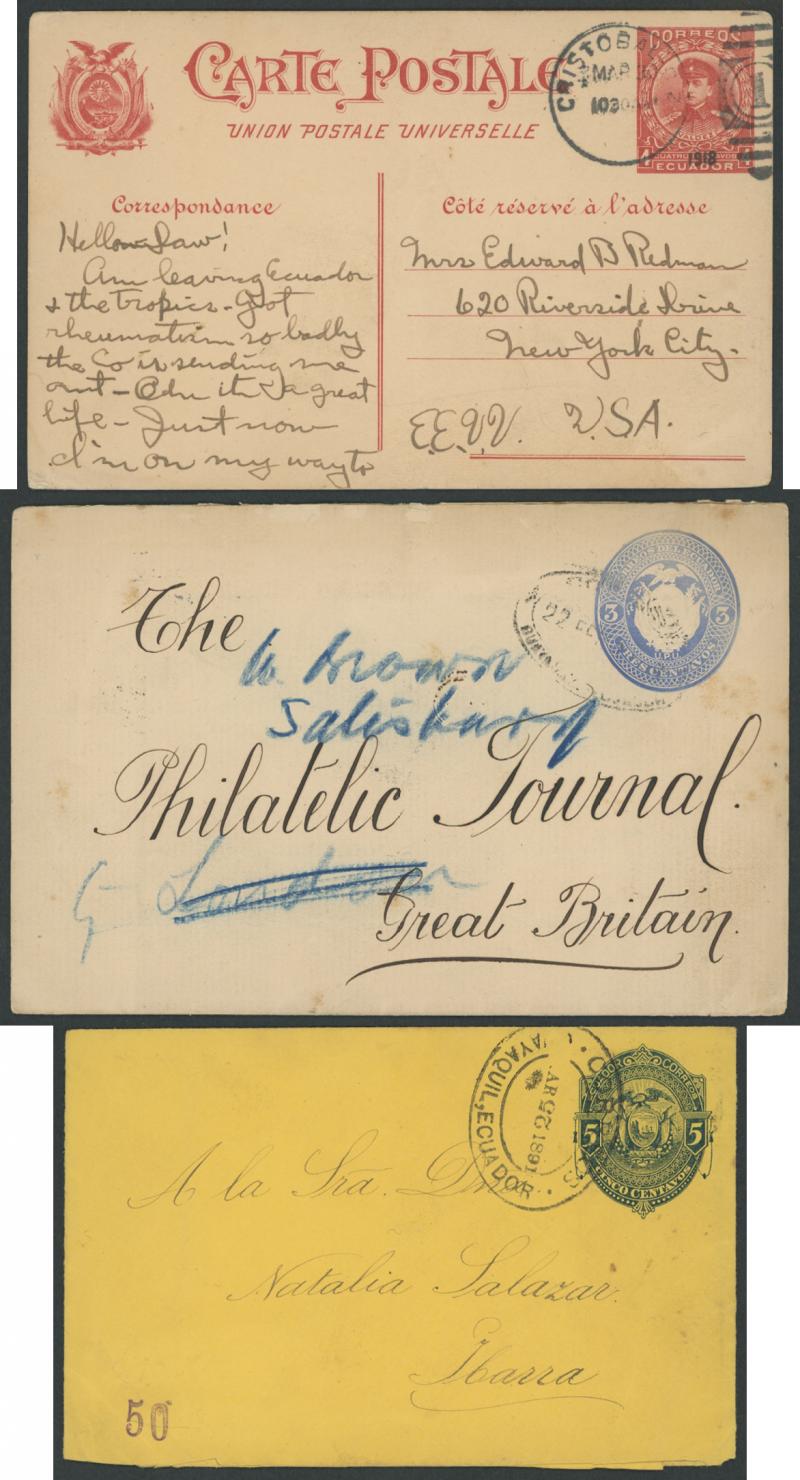 CARTE POSTALE
UNION POSTALE UNIVERSELLE
CRISTOBAL
MAR
1030
CORREOS
4 4
CUATRO CENTAVOS
ECUADOR
1918
Correspondance
Hellow Saw!
Am leaving Ecuador
& the tropics - Got
rheumatism so badly
the Co is sending me
out - it a great
life - Just now
I'm on my way to
Côté réservé à l'adresse
Mrs Edward B Redman
620 Riverside Drive
New York City.
E.E.U.U. U.S.A.
22 EC
3 3
TRES CENTAVOS
UPU
The
W Brown
Salisbury
Philatelic Journal.
London
Great Britain.
GUAYAQUIL, ECUADOR.
MAR 25 1891
ECUADOR CORREOS
5 5
CINCO CENTAVOS
A la Sra. Dña.
Natalia Salazar.
Ibarra
50